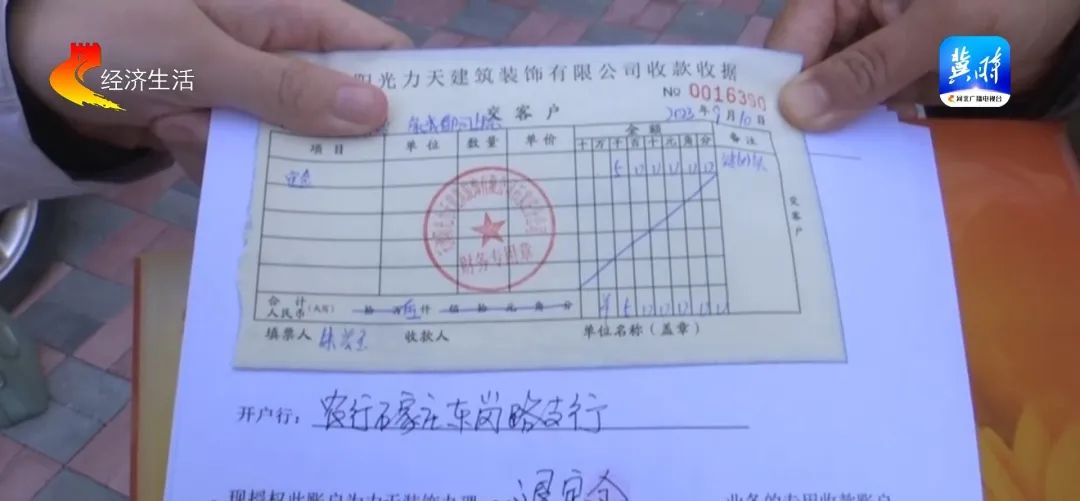 经济生活
冀时
河北广播电视台
阳光力天建筑装饰有限公司收款收据
№ 0016390
交客户
2023年9月10日
项目 单位 数量 单价 金额 备注
十万千百十元角分
定金
交客户
财务专用章
合计
人民币(大写) 拾 万 伍仟 佰 拾 元 角 分
填票人 收款人 单位名称(盖章)
开户行: 农行石家庄东岗路支行
现授权此账户为力天装饰办理 退定金 业务的专用收款账户